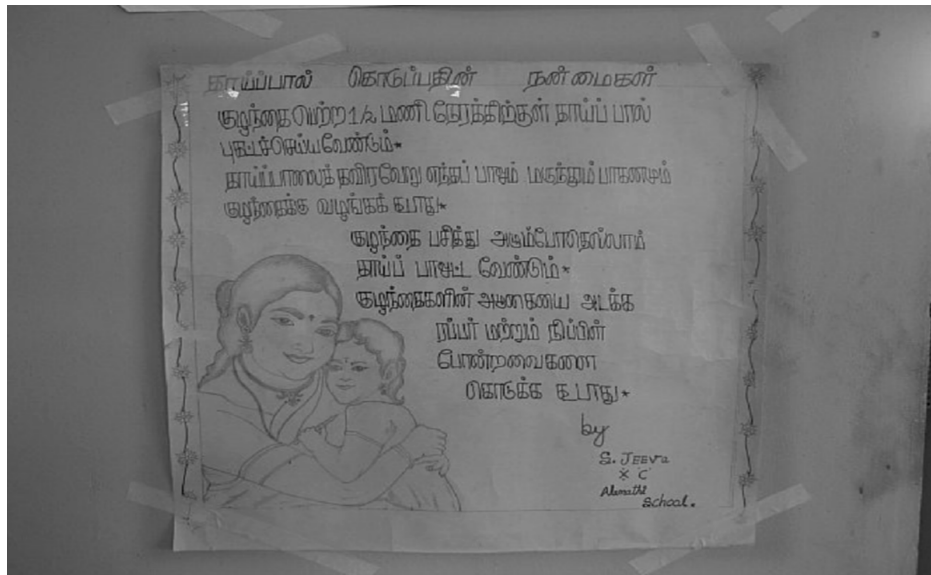 தாய்ப்பால் கொடுப்பதின் நன்மைகள்
குழந்தை பெற்ற 1/2 மணி நேரத்திற்குள் தாய்ப் பால்
புகட்டச்செய்யவேண்டும்*
தாய்ப்பாலைத் தவிரவேறு எந்தப் பாலும் மருந்தும்
குழந்தைக்கு வழங்கக் கூடாது*
குழந்தை பசித்து அழும்போதெல்லாம்
தாய்ப் பாலூட்ட வேண்டும்*
குழந்தைகளின் அழுகையை அடக்க
ரப்பர் மற்றும் நிப்பிள்
போன்றவைகளை
கொடுக்க கூடாது*
by
S. JEEVa
X 'C'
School.